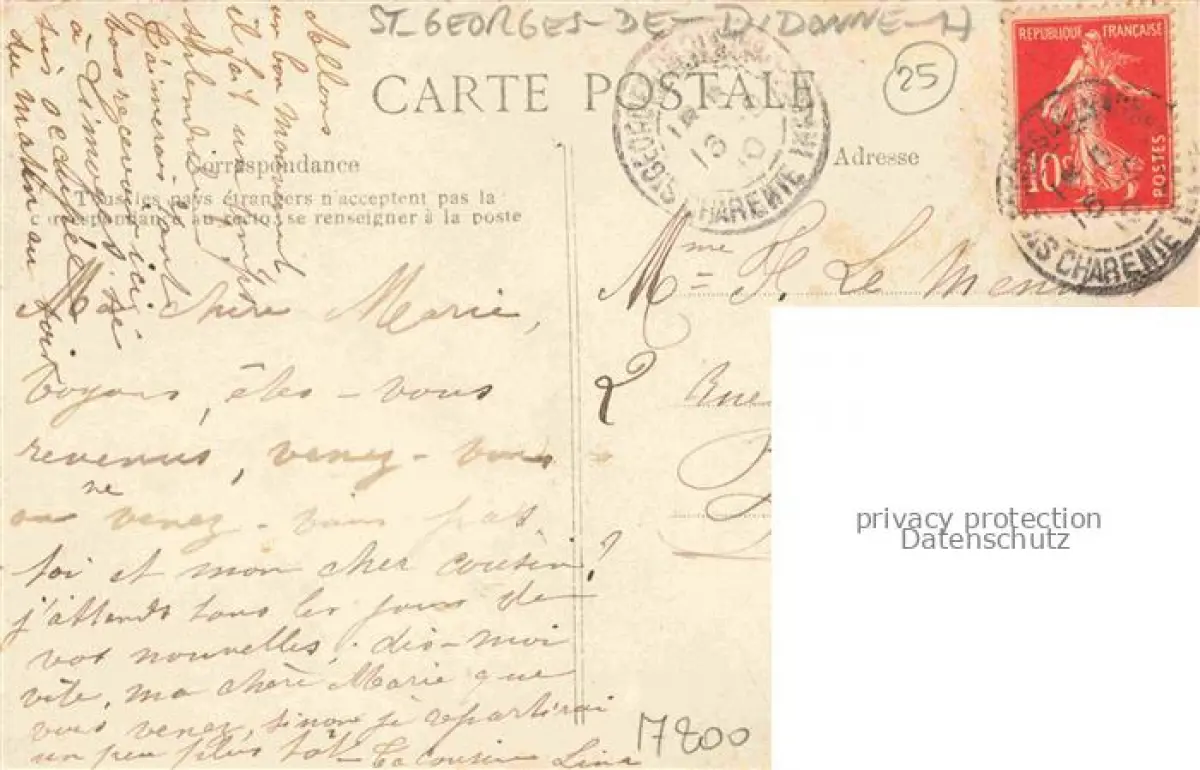 ST GEORGES-DE-DIDONNE-H
25
REPUBLIQUE FRANÇAISE
10c
POSTES
CARTE POSTALE
Correspondance
Tous les pays étrangers n'acceptent pas la
correspondance au recto; se renseigner à la poste
Adresse
CHARENTE
CHARENTE
Mme H. Le
2 Rue
Ma chère Marie,
Voyons, êtes-vous
revenus, venez-vous
ou ne venez-vous pas
toi et mon cher cousin?
j'attends tous les jours de
vos nouvelles, dis-moi
vite, ma chère Marie que
vous venez, sinon je repartirai
un peu plus tôt - Ta cousine Lina
Allons
un bon mouvement
il fait un temps
splendide,
J'aimerais tant
vous recevoir ici,
à
suis occupée
du matin au soir
17200
privacy protection
Datenschutz